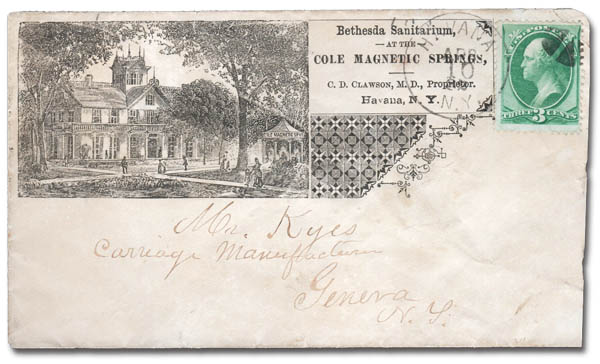 Bethesda Sanitarium,
— AT THE —
COLE MAGNETIC SPRINGS,
C. D. CLAWSON, M. D., Proprietor.
Havana, N. Y.
HAVANA
APR
10
N.Y.
U.S. POSTAGE
THREE 3 CENTS
COLE MAGNETIC SPR
Mr. Kyes
Carriage Manufacturer
Geneva
N. Y.